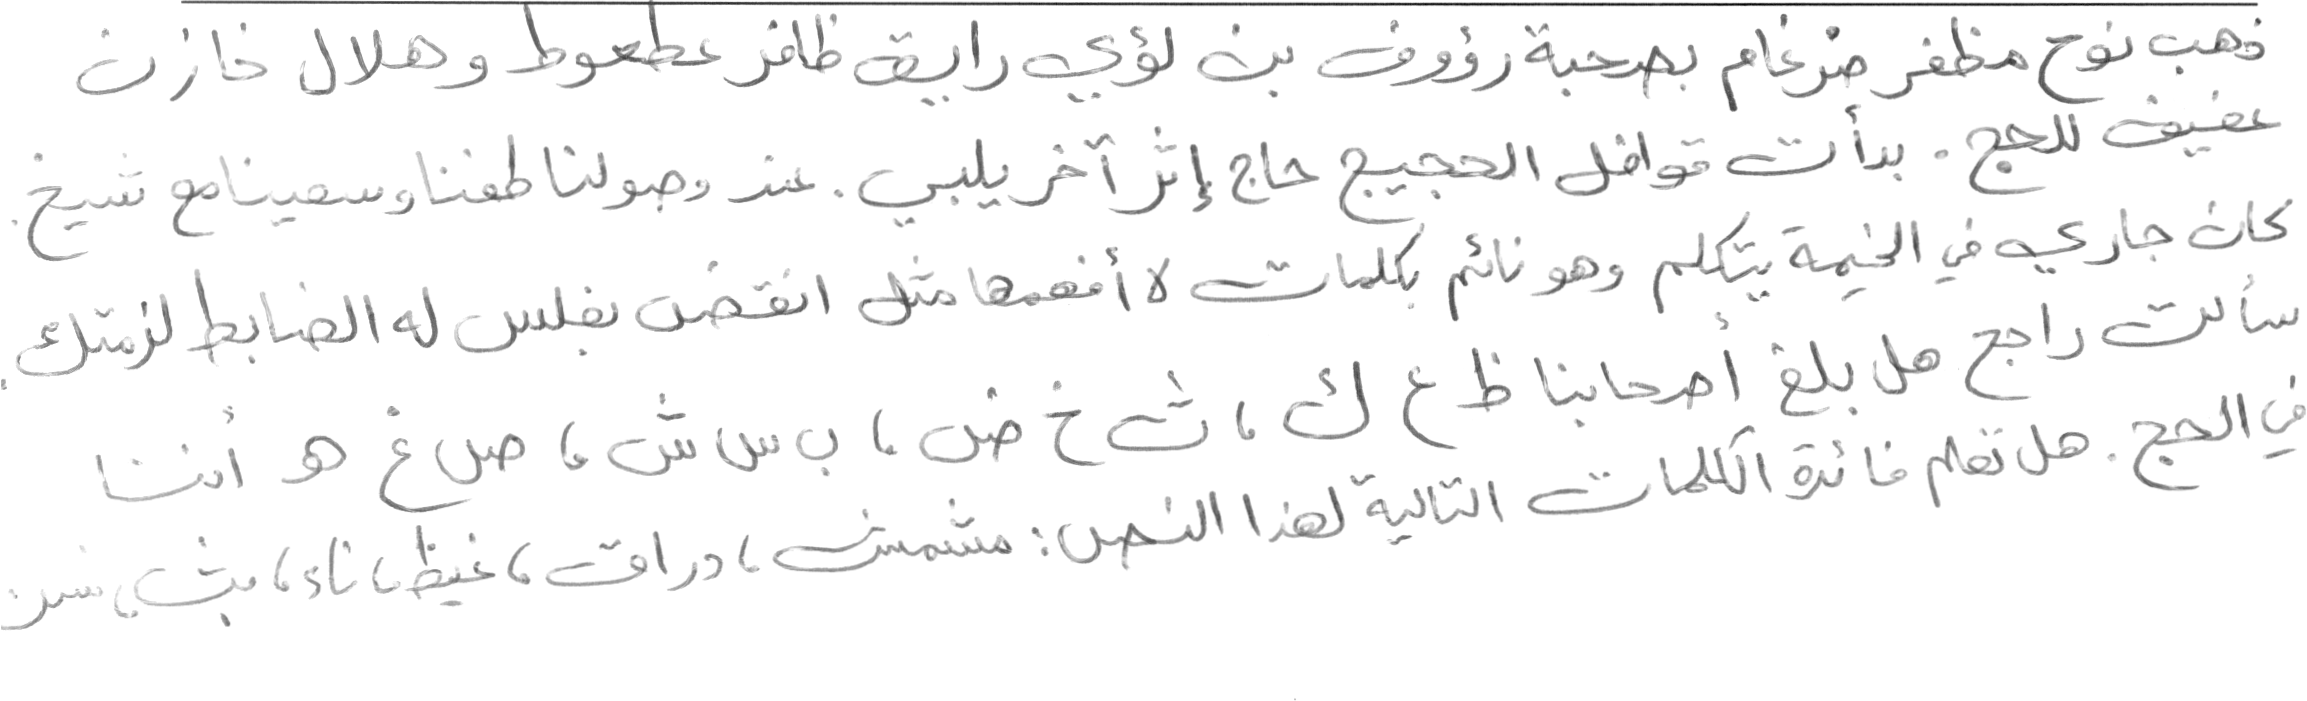 ذهب نوح مظفر ضرغام بصحبة رؤوف بن لؤي رايق ظافر عطعوط و هلال خازن
عفيف للحج . بدأت قوافل الحجيج حاج إثر آخر يلبي . عند وصولنا طفنا وسعينا مع شيخ .
كان جاري في الخيمة يتكلم وهو نائم بكلمات لا أفهمها مثل انقض بفلس له الضابط لزمتك .
سألت راجح هل بلغ أصحابنا ظ ع ك ، ث خ ض ، ب س ش ، ص غ هو أننا
في الحج . هل تعلم فائدة الكلمات التالية لهذا النص : مشمش ، دراق ، غيظ ، ناء ، بث ،